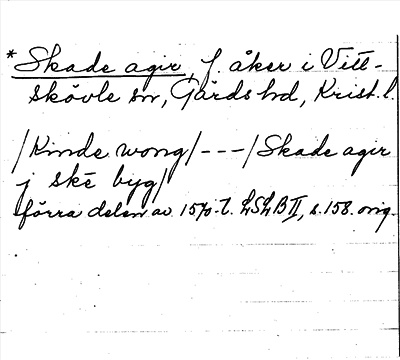 *Skade agir, f. åker i Vitt-
skövle sn, Gärds hd, Krist. l.
/Kinde wong/---/Skade agir
j skē byg/
förra delen av 1570-t. LSLB II, s. 158. orig.